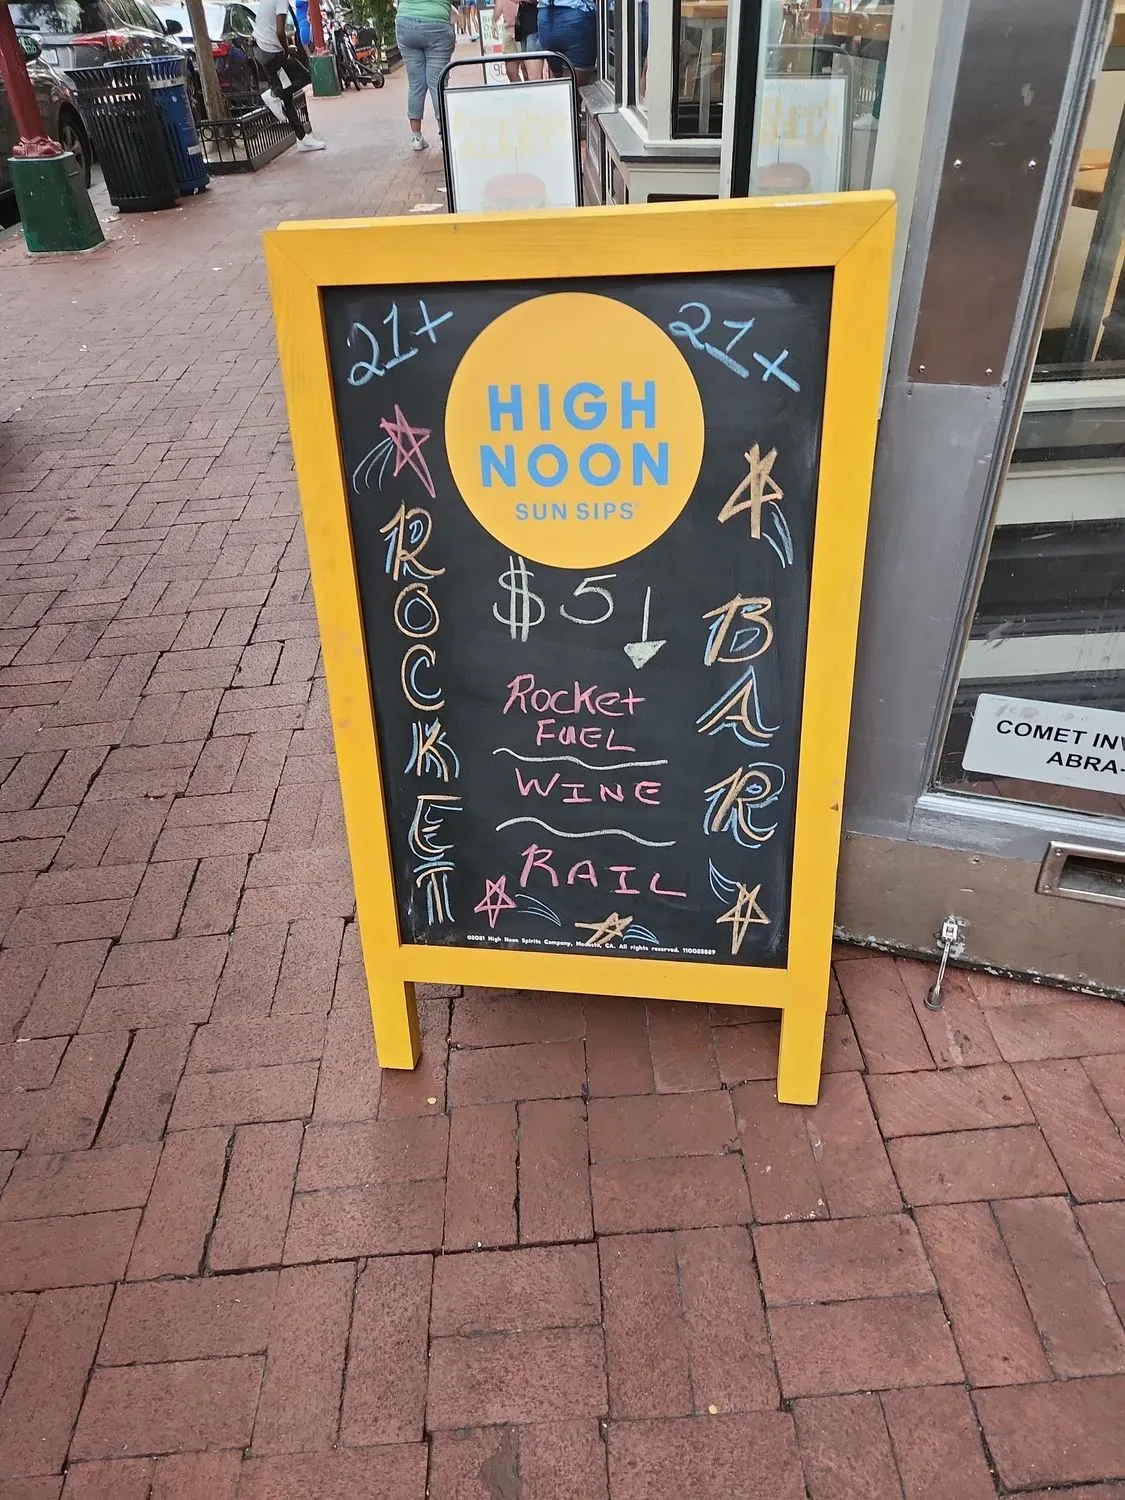 21+
21+
HIGH
NOON
SUN SIPS
$5
ROCKET
BAR
Rocket
FUEL
WINE
RAIL
©2021 High Noon Spirits Company, Modesto, CA. All rights reserved.
COMET
ABRA-